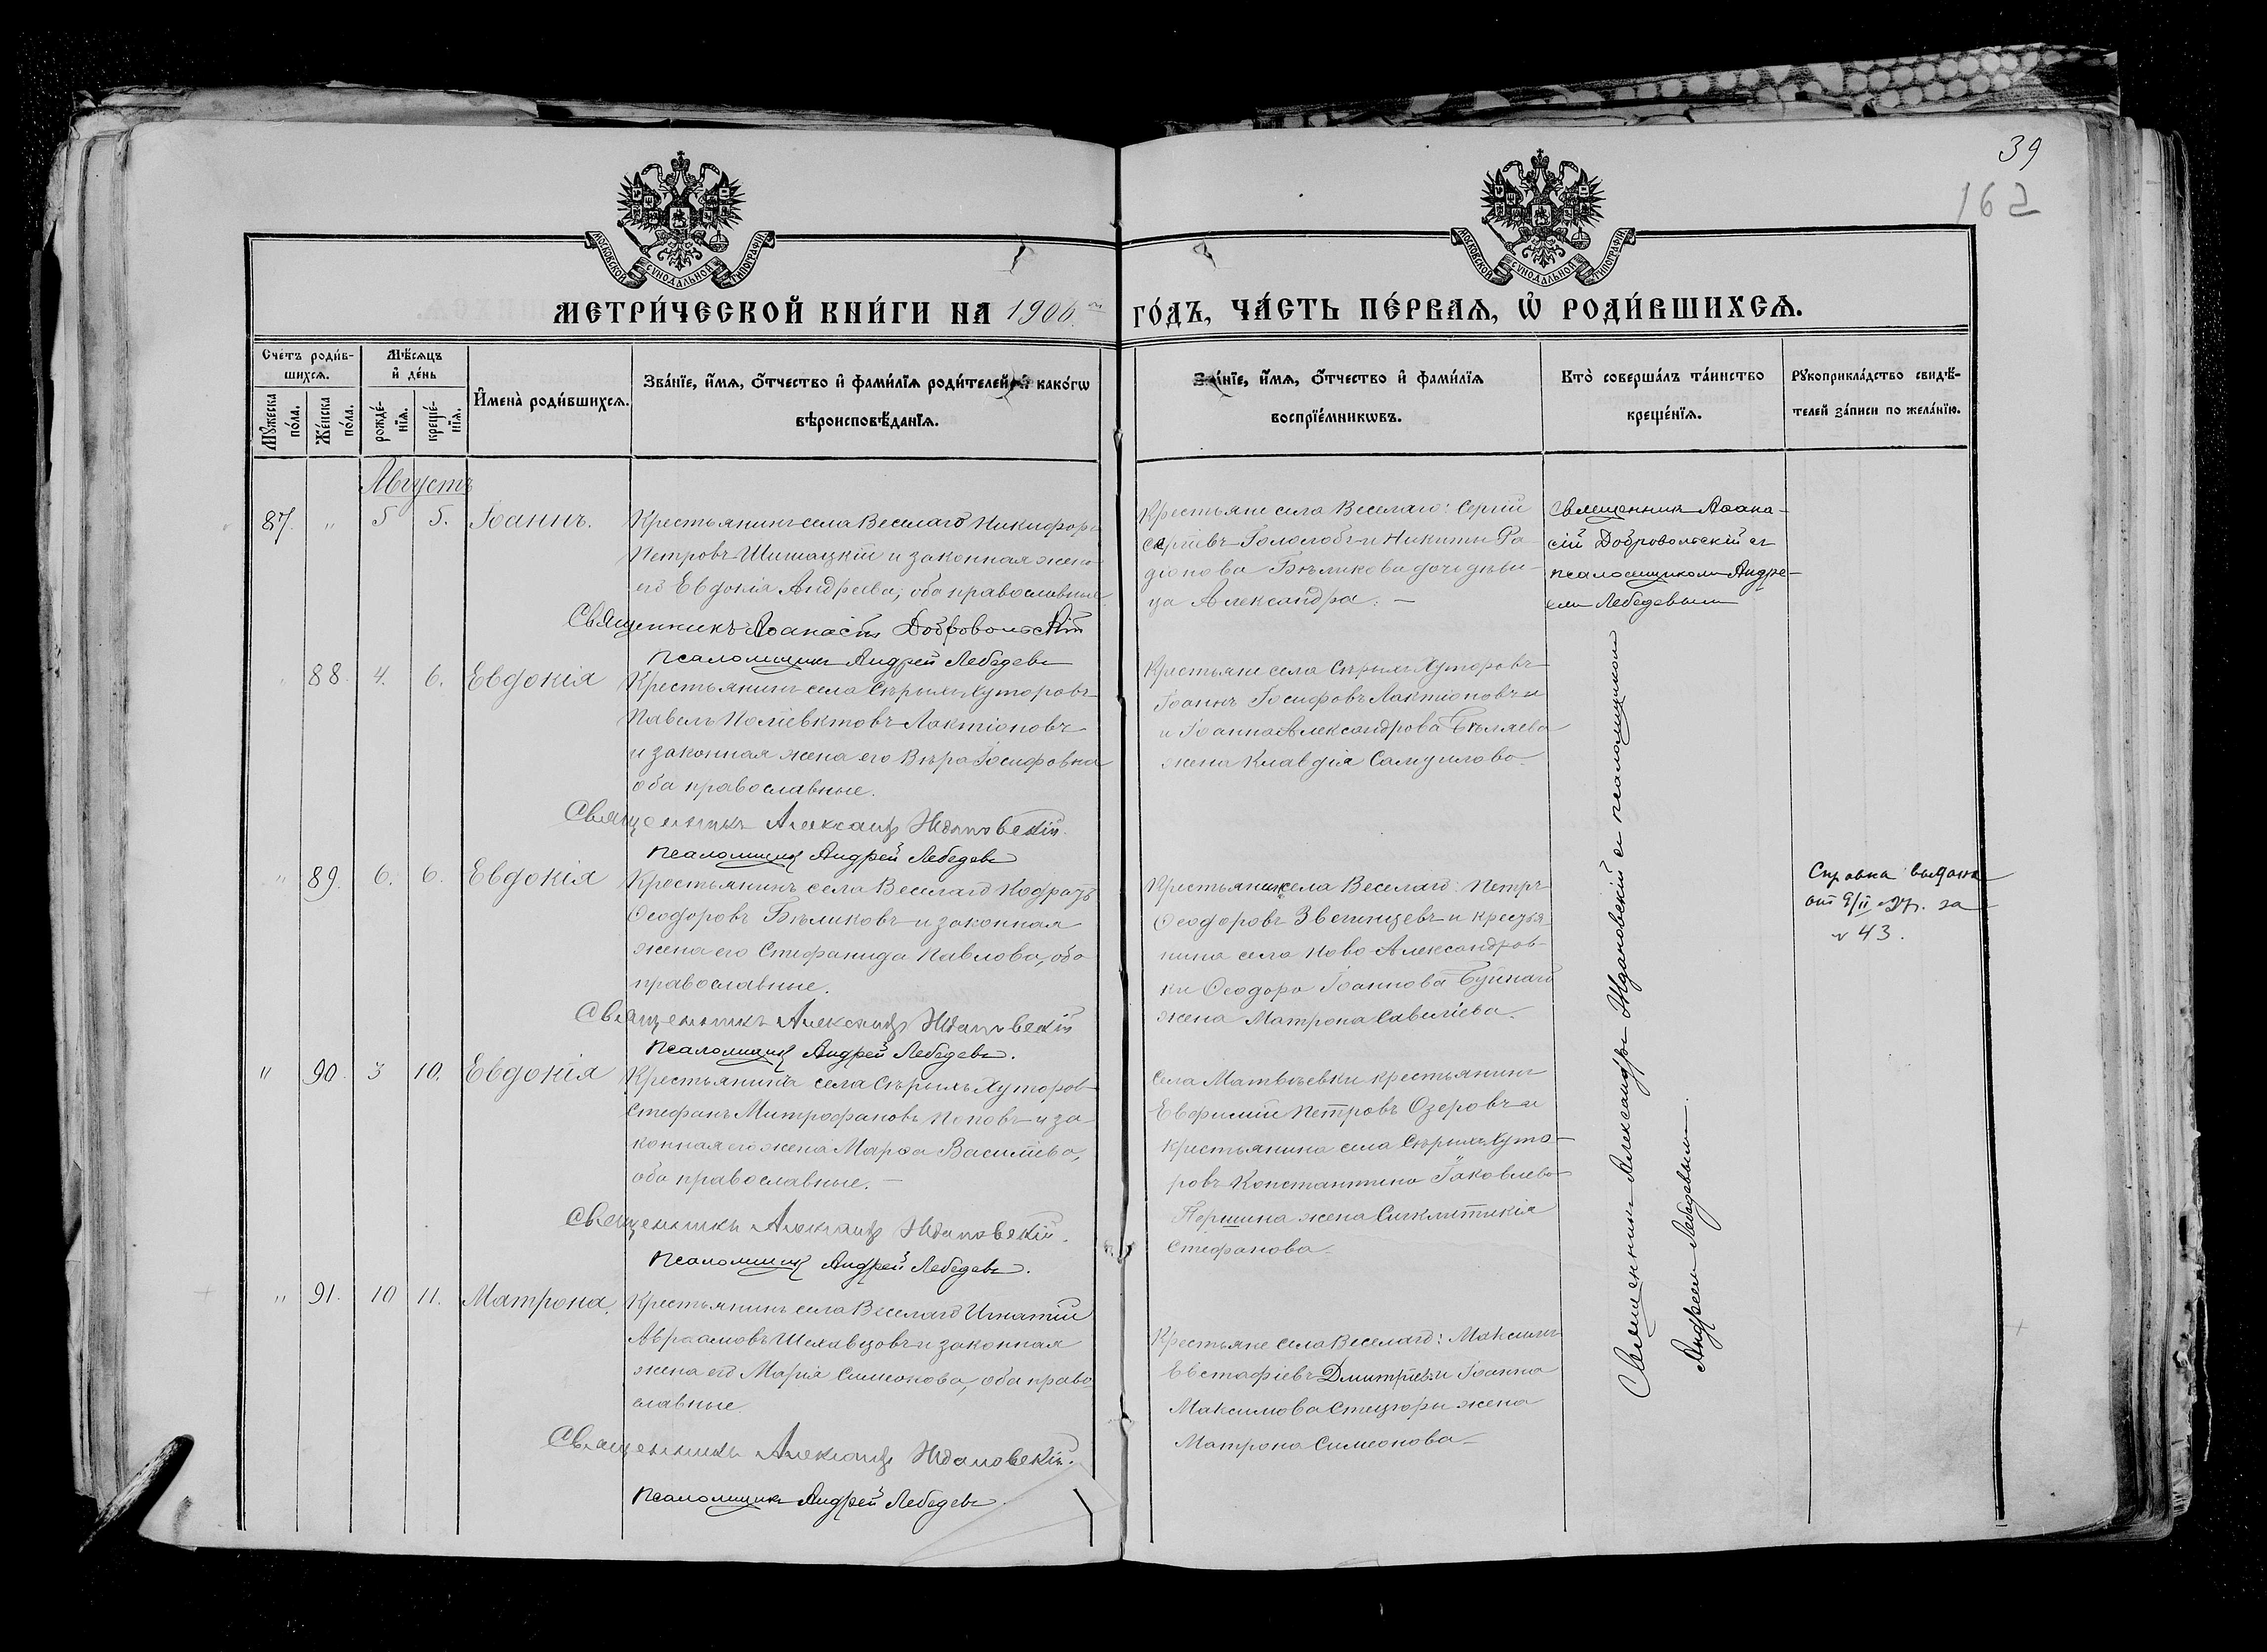 39
162
МОСКОВСКОЙ СѴНОДАЛЬНОЙ ТИПОГРАФІИ
МОСКОВСКОЙ СѴНОДАЛЬНОЙ ТИПОГРАФІИ
МЕТРИ́ЧЕСКОЙ КНИ́ГИ НА 1906 ГО́ДЪ, ЧА́СТЬ ПЕ́РВАѦ, Ѡ҆ РОДИ́ВШИХСѦ.
Сче́тъ роди́в-
шихсѧ.
Мѣ́сѧцъ
и҆ де́нь
Мꙋ́жеска по́ла.
Же́нска по́ла.
рожде́-
нїѧ.
креще́-
нїѧ.
И҆мена̀ роди́вшихсѧ.
Зва́нїе, и҆́мѧ, ѻ҆́тчество и҆ фами́лїѧ роди́телей и҆ како́гѡ
вѣроисповѣ́данїѧ.
Зва́нїе, и҆́мѧ, ѻ҆́тчество и҆ фами́лїѧ
воспрїе́мникѡвъ.
Кто̀ соверша́лъ та́инство
креще́нїѧ.
Рꙋкоприкла́дство свидѣ́-
телей за́писи по жела́нїю.
Августъ
87. " 5 5. Іоаннъ.
Крестьянинъ села Веселаго Никифоръ
Петровъ Шишацкій и законная жена
его Евдокія Андреева, оба православные.
Священникъ Аѳанасій Добровольскій
Псаломщикъ Андрей Лебедевъ
Крестьяне села Веселаго: Сергій
Сергіевъ Гололобъ и Никиты Ра-
діонова Бѣликова дочь дѣви-
ца Александра. —
Священникъ Аѳана-
сій Добровольскій съ
псаломщикомъ Андре-
емъ Лебедевымъ
88. 4. 6. Евдокія
Крестьянинъ села Сѣрыхъ Хуторовъ
Павелъ Поліевктовъ Лактіоновъ
и законная жена его Вѣра Іосифовна
оба православные.
Священникъ Александръ Ждановскій.
Псаломщикъ Андрей Лебедевъ
Крестьяне села Сѣрыхъ Хуторовъ
Іоаннъ Іосифовъ Лактіоновъ и
и Іоанна Александрова Бѣляева
жена Клавдія Самуилова.
" 89. 6. 6. Евдокія
Крестьянинъ села Веселаго Кодратъ
Ѳеодоровъ Бѣликовъ и законная
жена его Стефанида Павлова, оба
православные.
Священникъ Александръ Ждановскій
Псаломщикъ Андрей Лебедевъ.
Крестьянинъ села Веселаго: Петръ
Ѳеодоровъ Звегинцевъ и крестья-
нина села Ново-Александров-
ки Ѳеодора Іоаннова Буйнаго
жена Матрона Савелiева.
Справка выдана
от 9/II 27г. за
№ 43.
" 90. 3 10. Евдокія
Крестьянинъ села Сѣрыхъ Хуторовъ
Стефанъ Митрофановъ Поповъ и за-
конная его жена Марѳа Василіева,
оба православные. —
Священникъ Александръ Ждановскій.
Псаломщикъ Андрей Лебедевъ.
Села Матвѣевки крестьянинъ
Евфимій Петровъ Озеровъ и
крестьянина села Сѣрыхъ Хуто-
ровъ Константина Іаковлева
Першина жена Синклитикія
Стефанова.
" 91. 10 11. Матрона.
Крестьянинъ села Веселаго Игнатій
Авраамовъ Шелавцовъ и законная
жена его Марія Симеонова, оба право-
славные
Священникъ Александръ Ждановскій.
Псаломщикъ Андрей Лебедевъ.
Крестьяне села Веселаго: Максимъ
Евстафіевъ Дмитріевъ и Іоанна
Максимова Стецюры жена
Матрона Симеонова
Священникъ Александръ Ждановскій съ псаломщикомъ
Андреемъ Лебедевымъ.